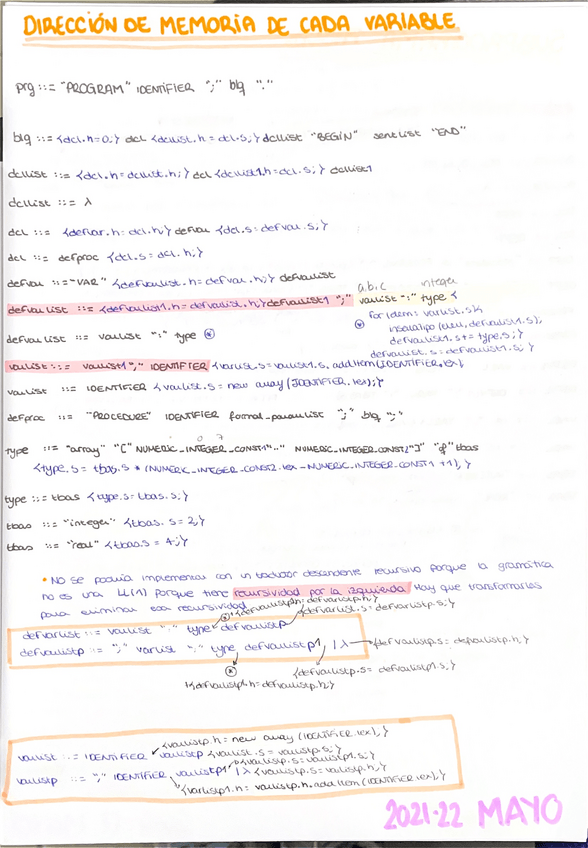 DIRECCIÓN DE MEMORIA DE CADA VARIABLE
prg ::= "PROGRAM" IDENTIFIER ";" blq "."
blq ::= {dcl.h=0;} dcl {dcllist.h = dcl.s;} dcllist "BEGIN" sentlist "END"
dcllist ::= {dcl.h = dcllist.h;} dcl {dcllist1.h=dcl.s;} dcllist1
dcllist ::= λ
dcl ::= {defvar.h: dcl.h;} defvar {dcl.s: defvar.s;}
dcl ::= defproc {dcl.s = dcl.h;}
defvar ::= "VAR" {defvarlist.h = defvar.h;} defvarlist
a,b,c integer
defvarlist ::= {defvarlist1.h = defvarlist.h;} defvarlist1 ";" varlist ":" type {
for (elem : varlist.s) {
insertatipo (elem, defvarlist1.s);
defvarlist1.s += type.s; }
defvarlist.s = defvarlist1.s; }
defvarlist ::= varlist ":" type *
varlist ::= varlist1 "," IDENTIFIER {varlist.s = varlist1.s.addItem(IDENTIFIER.lex)
varlist ::= IDENTIFIER {varlist.s = new array (IDENTIFIER.lex);}
defproc ::= "PROCEDURE" IDENTIFIER formal_paramlist ";" blq ";"
0 7
type ::= "array" "[" NUMERIC_INTEGER_CONST1 ".." NUMERIC_INTEGER_CONST2 "]" "of" tbas
{type.s = tbas.s * (NUMERIC_INTEGER_CONST2.lex - NUMERIC_INTEGER_CONST1 +1);}
type ::= tbas {type.s = tbas.s;}
tbas ::= "integer" {tbas.s = 2;}
tbas ::= "real" {tbas.s = 4;}
• No se podría implementar con un traductor descendente recursivo porque la gramática
no es una LL(1) porque tiene recursividad por la izquierda. Hay que transformarlas
para eliminar esa recursividad
* {defvarlistp.h= defvarlist.h;}
{defvarlist.s = defvarlistp.s;}
defvarlist ::= varlist ":" type defvarlistp
defvarlistp ::= ";" varlist ":" type defvarlistp1 | λ {defvarlistp.s = defvarlistp.h;}
* {defvarlistp.s = defvarlistp1.s;}
{defvarlistp1.h=defvarlistp.h;}
{varlistp.h = new array (IDENTIFIER.lex);}
varlist ::= IDENTIFIER varlistp {varlist.s = varlistp.s;}
{varlistp.s = varlistp1.s;}
varlistp ::= "," IDENTIFIER varlistp1 | λ {varlistp.s = varlistp.h;}
{varlistp1.h = varlistp.h.addItem (IDENTIFIER.lex);}
2021-22 MAYO